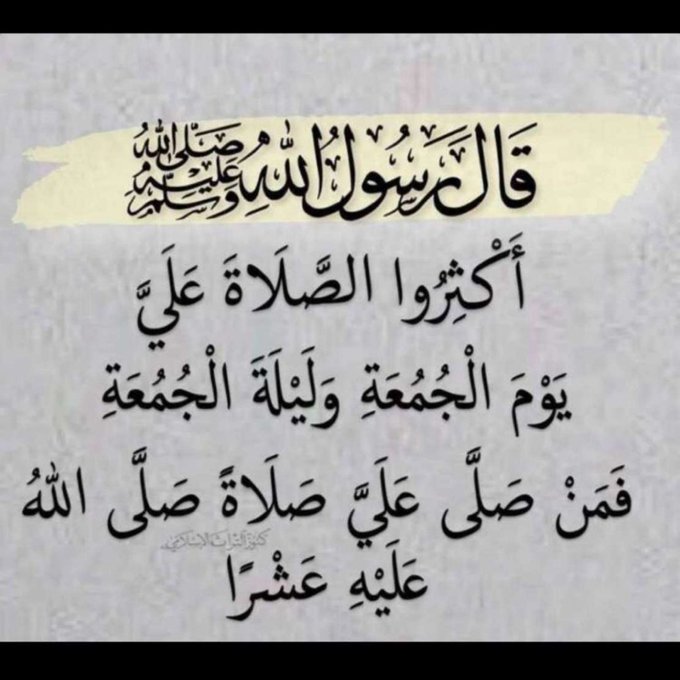 قَالَ رَسُولُ اللهِ صَلَّى اللهُ عَلَيْهِ وَسَلَّمَ
أَكْثِرُوا الصَّلَاةَ عَلَيَّ
يَوْمَ الْجُمُعَةِ وَلَيْلَةَ الْجُمُعَةِ
فَمَنْ صَلَّى عَلَيَّ صَلَاةً صَلَّى اللهُ
كنوز التراث الإسلامي
عَلَيْهِ عَشْرًا